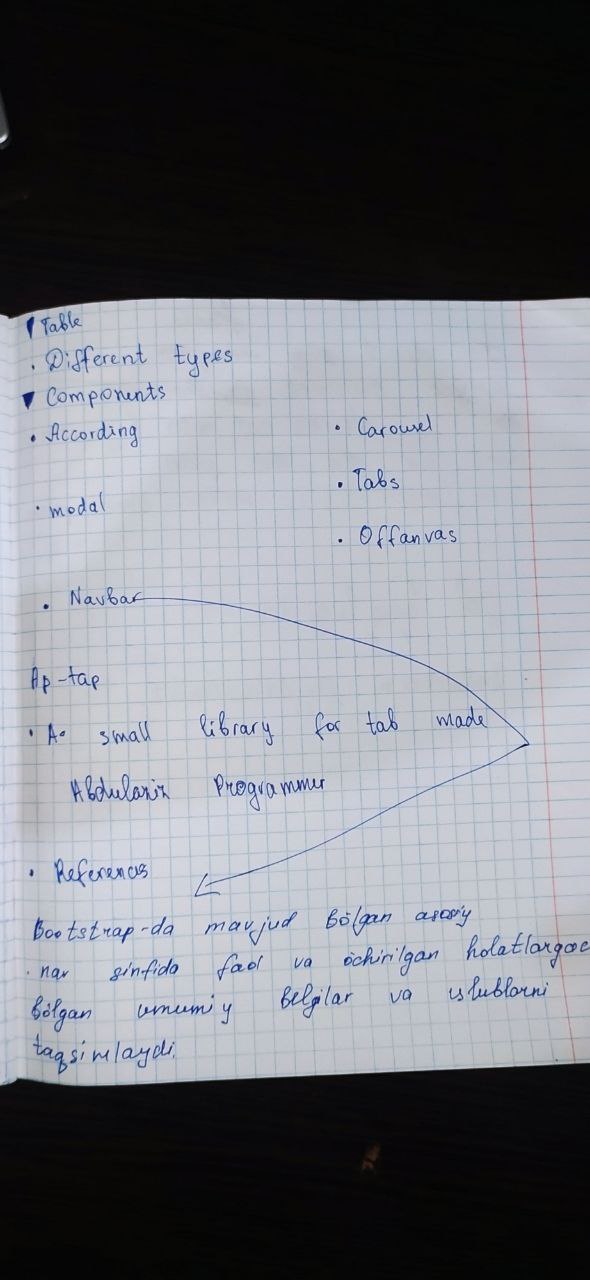 Table
. Different types
Components
• According
• Carousel
• Tabs
• modal
• Offanvas
• Navbar
Ap-tap
• A• small library for tab made
Abdulaziz Programmer
• References
Bootstrap-da mavjud bōlgan asosiy
.nav sinfida faol va ōchirilgan holatlarga
bōlgan umumiy belgilar va uslublarni
taqsimlaydi.